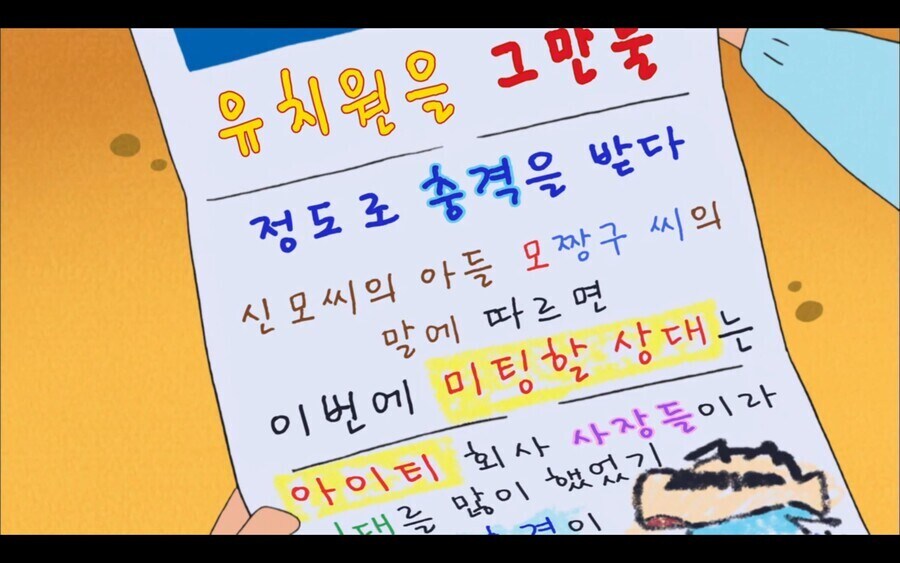 유치원을 그만둘
정도로 충격을 받다
신모씨의 아들 모짱구 씨의
말에 따르면
이번에 미팅할 상대는
아이티 회사 사장들이라
기대를 많이 했었기
충격이